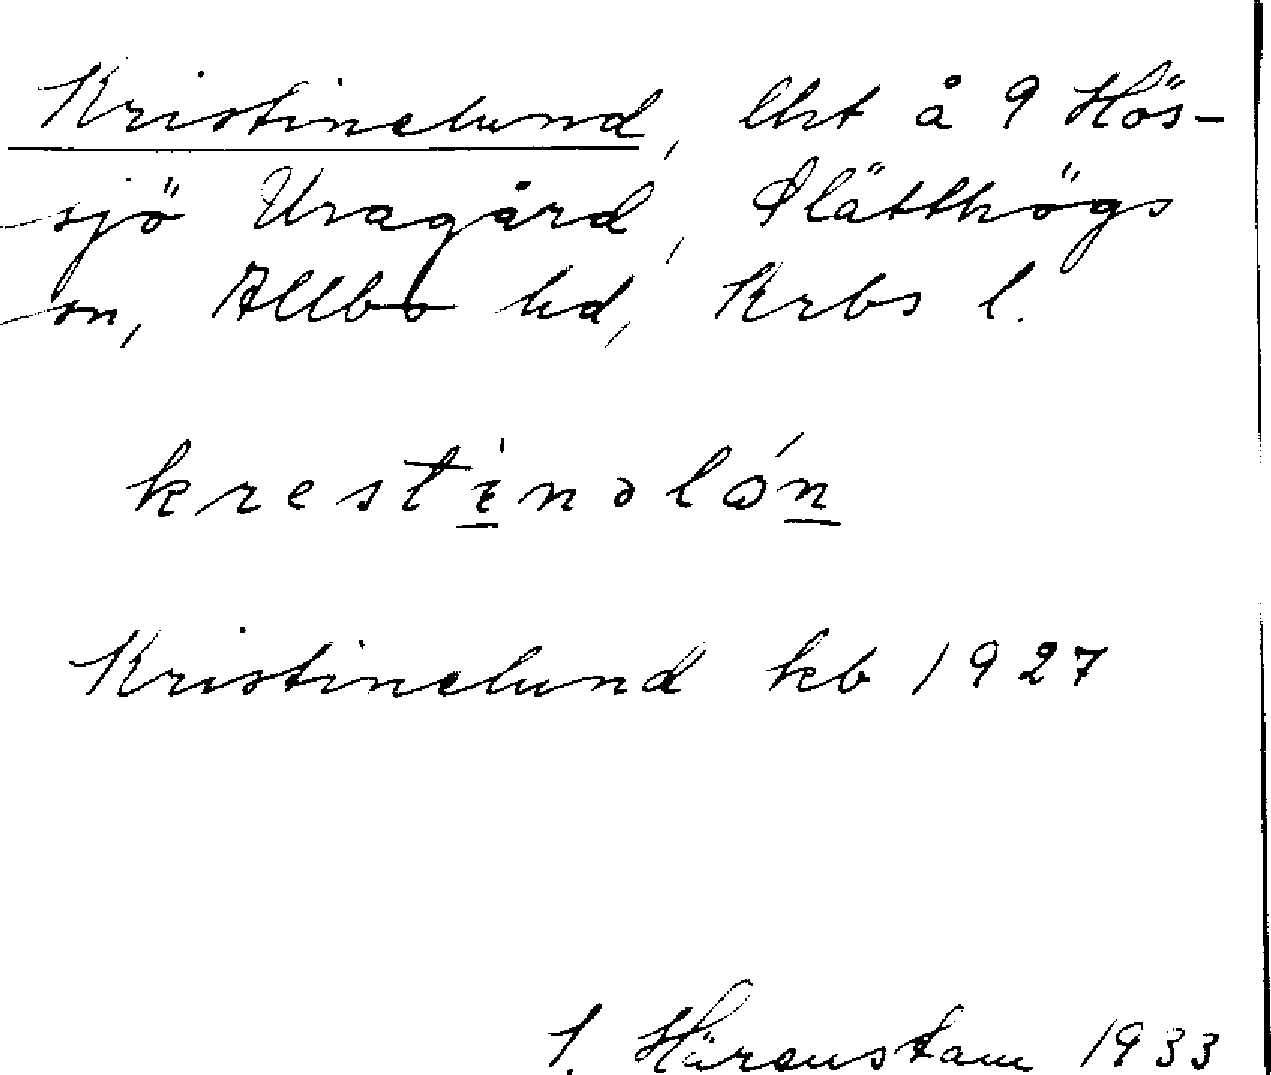 Kristinelund, lht å 9 Hös-
sjö Uragård, Slätthögs
sn, Allbo hd, Krbs l.
krestinəlón
Kristinelund kb 1927
1933